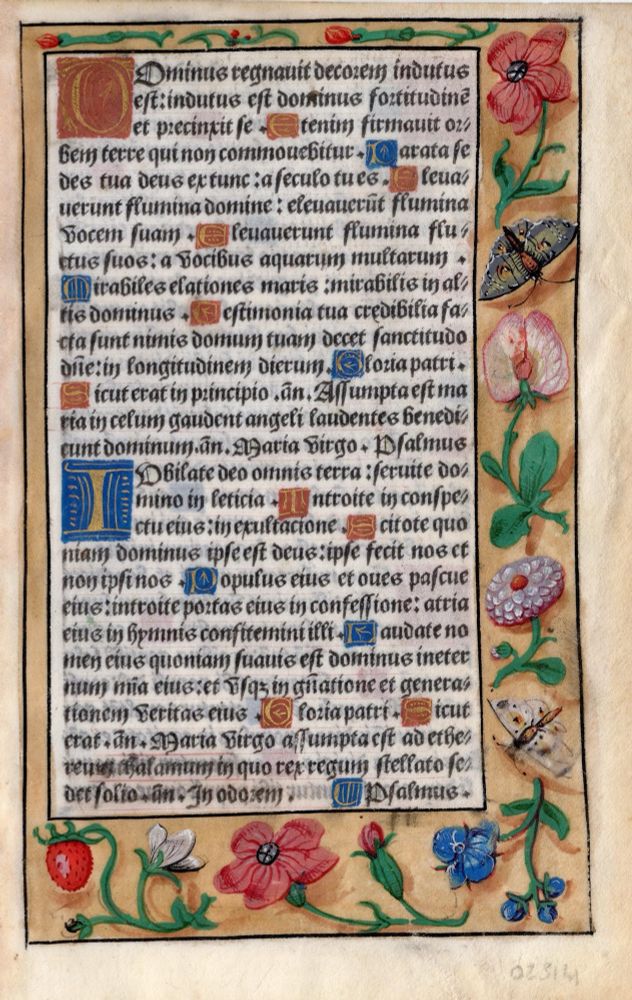 Dominus regnauit decorem indutus
est: indutus est dominus fortitudinē
et precinxit se. Etenim firmauit or⸗
bem terre qui non commouebitur. Parata se
des tua deus ex tunc: a seculo tu es. Eleua⸗
uerunt flumina domine: eleuauerūt flumina
vocem suam. Eleuauerunt flumina flu⸗
ctus suos: a vocibus aquarum multarum.
Mirabiles elationes maris: mirabilis in al⸗
tis dominus. Testimonia tua credibilia fa⸗
cta sunt nimis domum tuam decet sanctitudo
dn̄e: in longitudinem dierum. Gloria patri.
Sicut erat in principio. an̄. Assumpta est ma
ria in celum gaudent angeli laudentes benedi⸗
cunt dominum. an̄. Maria virgo. Psalmus
IObilate deo omnis terra: seruite do⸗
mino in leticia. Introite in conspe⸗
ctu eius: in exultacione. Scitote quo
niam dominus ipse est deus: ipse fecit nos et
non ipsi nos. Populus eius et oues pascue
eius: introite portas eius in confessione: atria
eius in hymnis confitemini illi. Laudate no
men eius quoniam suauis est dominus in eter
num mīa eius: et vsqz in gn̄atione et genera⸗
tionem veritas eius. Gloria patri. Sicut
erat. an̄. Maria virgo assumpta est ad ethe⸗
reum thalamum in quo rex regum stellato se⸗
det solio. an̄. In odorem. Psalmus.